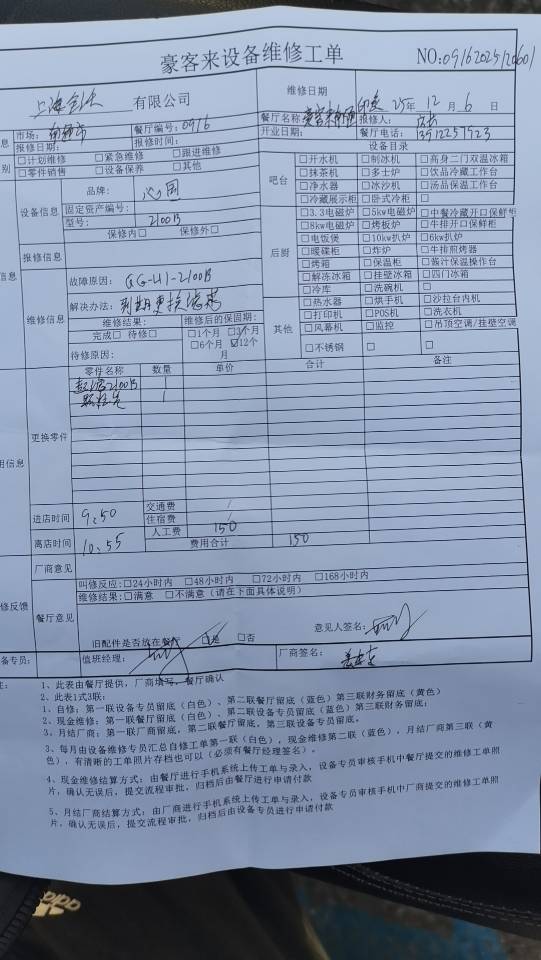 豪客来设备维修工单
NO:0916202512060
有限公司
维修日期 25年 12 月 6 日
市场: 餐厅编号: 0916
餐厅名称
报修日期: 报修时间: 报修人: 店长
开业日期: 餐厅电话:
□计划维修 □紧急维修 □跟进维修
□零件销售 □设备保养 □其他
设备目录
设备信息
品牌:
固定资产编号:
型号: 2100B
保修内□ 保修外□
报修信息
维修信息
故障原因: GG-U1-2100B
解决办法: 到期更换
维修结果: 维修后的保固期:
完成□ 待修□ □1个月 □3个月
□6个月 ☑12个月
待修原因:
吧台
□开水机 □制冰机 □高身二门双温冰箱
□抹茶机 □多士炉 □饮品冷藏工作台
□净水器 □冰沙机 □汤品保温工作台
□冷藏展示柜 □卧式冷柜 □
后厨
□3.3电磁炉 □5kw电磁炉 □中餐冷藏开口保鲜柜
□8kw电磁炉 □烤板炉 □牛排开口保鲜柜
□电饭煲 □10kw扒炉 □6kw扒炉
□暖碟柜 □炸炉 □牛排煎烤器
□烤箱 □保温柜 □酱汁保温操作台
□解冻冰箱 □挂壁冰箱 □四门冰箱
□冷库 □洗碗机 □
其他
□热水器 □烘手机 □沙拉台内机
□打印机 □POS机 □洗衣机
□风幕机 □监控 □吊顶空调/挂壁空调
□不锈钢 □ □
零件名称 数量 单价 合计 备注
2100B 1
1
更换零件
进店时间 9:50
交通费 /
住宿费 /
人工费 150
离店时间 10:55
费用合计 150
厂商意见
餐厅意见
叫修反应:□24小时内 □48小时内 □72小时内 □168小时内
维修结果:□满意 □不满意(请在下面具体说明)
意见人签名:
旧配件是否放在餐厅 ☑是 □否
值班经理: 厂商签名:
1、此表由餐厅提供,厂商填写,餐厅确认
2、此表1式3联:
1、自修:第一联设备专员留底(白色)、第二联餐厅留底(蓝色)第三联财务留底(黄色)
2、现金维修:第一联餐厅留底(白色)、第二联设备专员留底(蓝色)第三联财务留底;
3、月结厂商:第一联厂商留底,第二联餐厅留底,第三联设备专员留底。
3、每月由设备维修专员汇总自修工单第一联(白色),现金维修第二联(蓝色),月结厂商第三联(黄
色),有清晰的工单照片存档也可以(必须有餐厅经理签名)。
4、现金维修结算方式:由餐厅进行手机系统上传工单与录入,设备专员审核手机中餐厅提交的维修工单照
片,确认无误后,提交流程审批,归档后由餐厅进行申请付款
5、月结厂商结算方式:由厂商进行手机系统上传工单与录入,设备专员审核手机中厂商提交的维修工单照
片,确认无误后,提交流程审批,归档后由设备专员进行申请付款